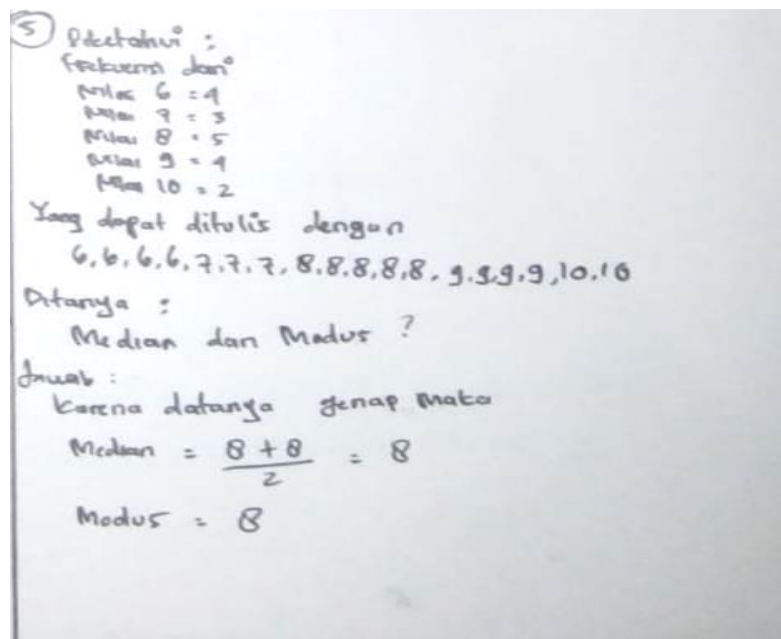 5 Diketahui :
Frekuensi dari
Nilai 6 = 4
Nilai 7 = 3
Nilai 8 = 5
Nilai 9 = 4
Nilai 10 = 2
Yang dapat ditulis dengan
6, 6, 6, 6, 7, 7, 7, 8, 8, 8, 8, 8, 9, 9, 9, 9, 10, 10
Ditanya :
Median dan Modus ?
Jawab :
Karena datanya genap maka
Median = 8 + 8 / 2 = 8
Modus = 8